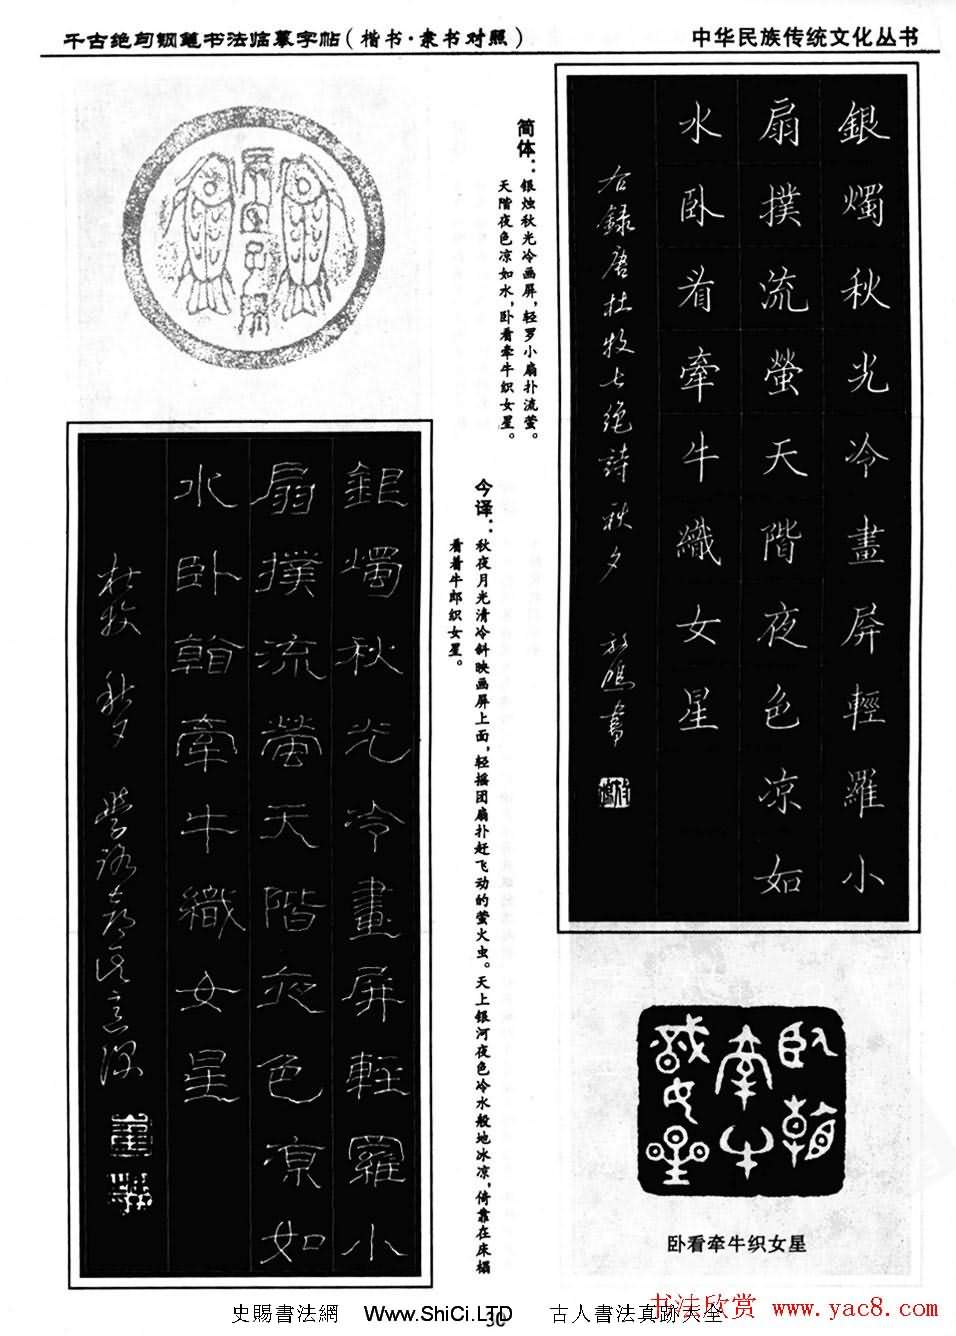 千古绝句钢笔书法临摹字帖（楷书·隶书对照）
中华民族传统文化丛书
銀燭秋光冷畫屏輕羅小
扇撲流螢天階夜色凉如
水卧看牽牛織女星
右録唐杜牧七绝詩秋夕
简体：银烛秋光冷画屏，轻罗小扇扑流萤。
天階夜色凉如水，卧看牵牛织女星。
今译：秋夜月光清冷斜映画屏上面，轻摇团扇扑赶飞动的萤火虫。天上银河夜色冷水般地冰凉，倚靠在床榻
看着牛郎织女星。
銀燭秋光冷畫屏輕羅小
扇撲流螢天階夜色凉如
水卧翰牽牛織女星
杜牧 秋夕
卧翰
牽牛
織女星
卧看牵牛织女星
史賜書法網 Www.ShiCi.LTD 古人書法真跡大全
30
书法欣赏 www.yac8.com